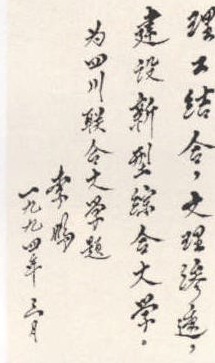 理工结合，文理渗透，
建设新型综合大学。
为四川联合大学题
李鹏
一九九四年三月